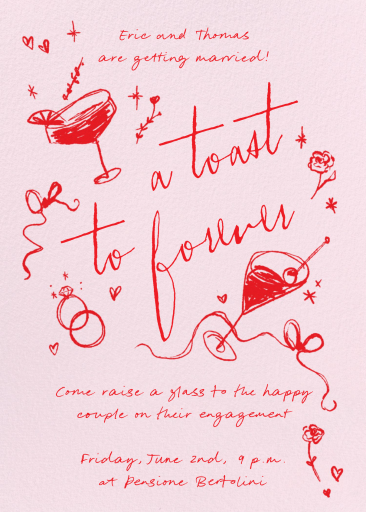 Eric and Thomas
are getting married!
a toast
to forever
Come raise a glass to the happy
couple on their engagement
Friday, June 2nd, 9 p.m.
at Pensione Bertolini